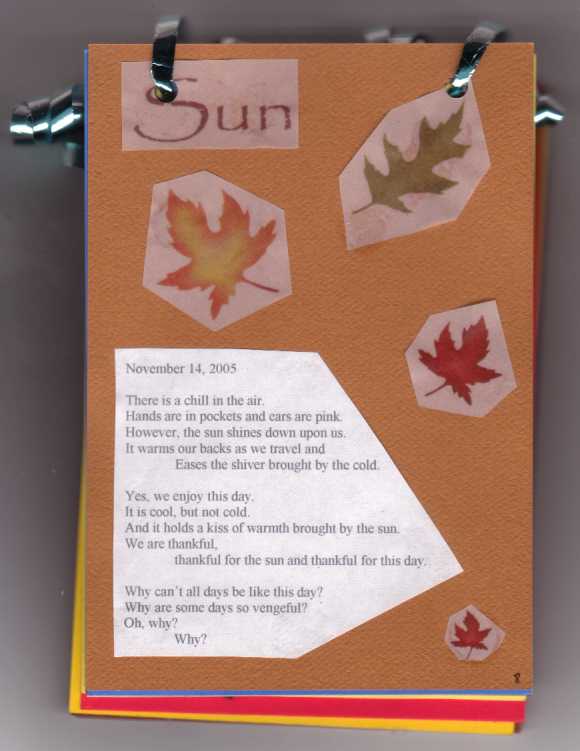 Sun
November 14, 2005
There is a chill in the air.
Hands are in pockets and ears are pink.
However, the sun shines down upon us.
It warms our backs as we travel and
Eases the shiver brought by the cold.
Yes, we enjoy this day.
It is cool, but not cold.
And it holds a kiss of warmth brought by the sun.
We are thankful,
thankful for the sun and thankful for this day.
Why can't all days be like this day?
Why are some days so vengeful?
Oh, why?
Why?
8